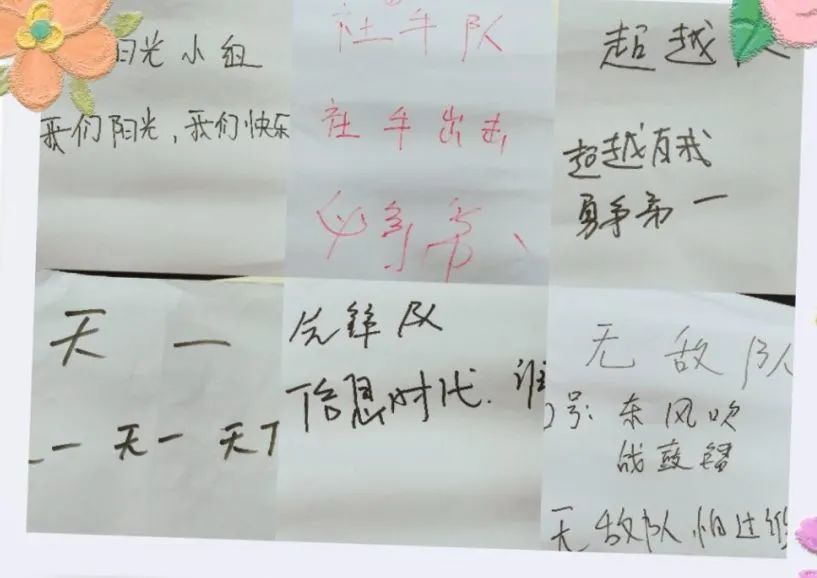 阳光小组
我们阳光，我们快乐
社牛队
社牛出击
必争第
超越
超越有我
勇争第一
天一
一天一天下
先锋队
信息时代.谁
无敌队
号:东风吹
战鼓镭
无敌队,怕过